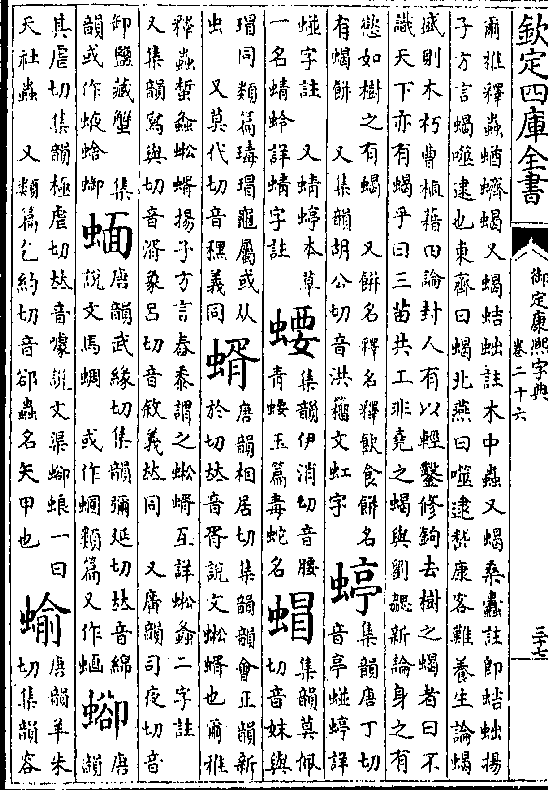 欽定四庫全書
御定康熙字典
卷二十六
三十七
爾雅釋蟲蝤蠐蝎又蝎蛣𧌑註木中蟲又蝎桑蠹註即蛣𧌑揚
子方言蝎噬逮也東齊曰蝎北燕曰噬逮嵇康答難養生論蝎
盛則木朽曹植藉田論封人有以輕鑿修鉤去樹之蝎者曰不
識天下亦有蝎乎曰三苗共工非堯之蝎與劉勰新論身之有
慾如樹之有蝎　又餅名釋名釋飲食餅名
有蝎餅　又集韻胡公切音洪籀文虹字
蝏
集韻唐丁切
音亭䗺蝏詳
䗺字註　又蜻蝏本草
一名蜻蛉詳蜻字註
𧍔
集韻伊消切音腰
青𧍔玉篇毒蛇名
蝐
集韻莫佩
切音妹與
瑁同類篇瑇瑁龜屬或从
虫　又莫代切音䆀義同
蝑
唐韻相居切集韻韻會正韻新
於切𠀤音胥說文蜙蝑也爾雅
釋蟲蜤螽蜙蝑揚子方言舂黍謂之蜙蝑互詳蜙螽二字註
又集韻寫與切音湑象呂切音敘義𠀤同　又廣韻司夜切音
卸鹽藏蟹　集
韻或作蛒
蝒
唐韻武緣切集韻彌延切𠀤音綿
說文馬蜩　或作類篇又作
𧎾
唐
韻
其虐切集韻極虐切𠀤音噱說文渠𧎾蜋一曰
天社蟲　又類篇乞約切音卻蟲名矢甲也
蝓
唐韻羊朱
切集韻容